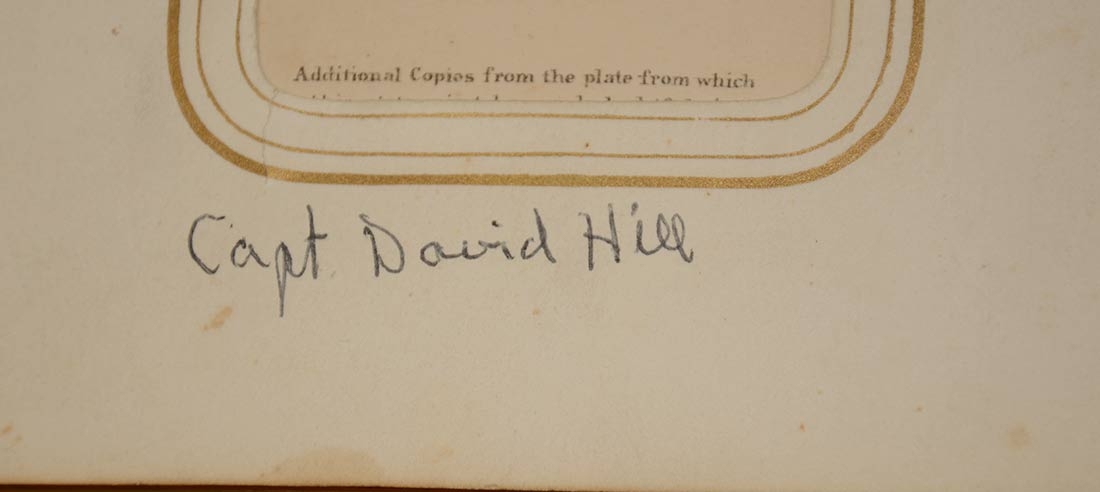 Additional Copies from the plate from which
Capt David Hill